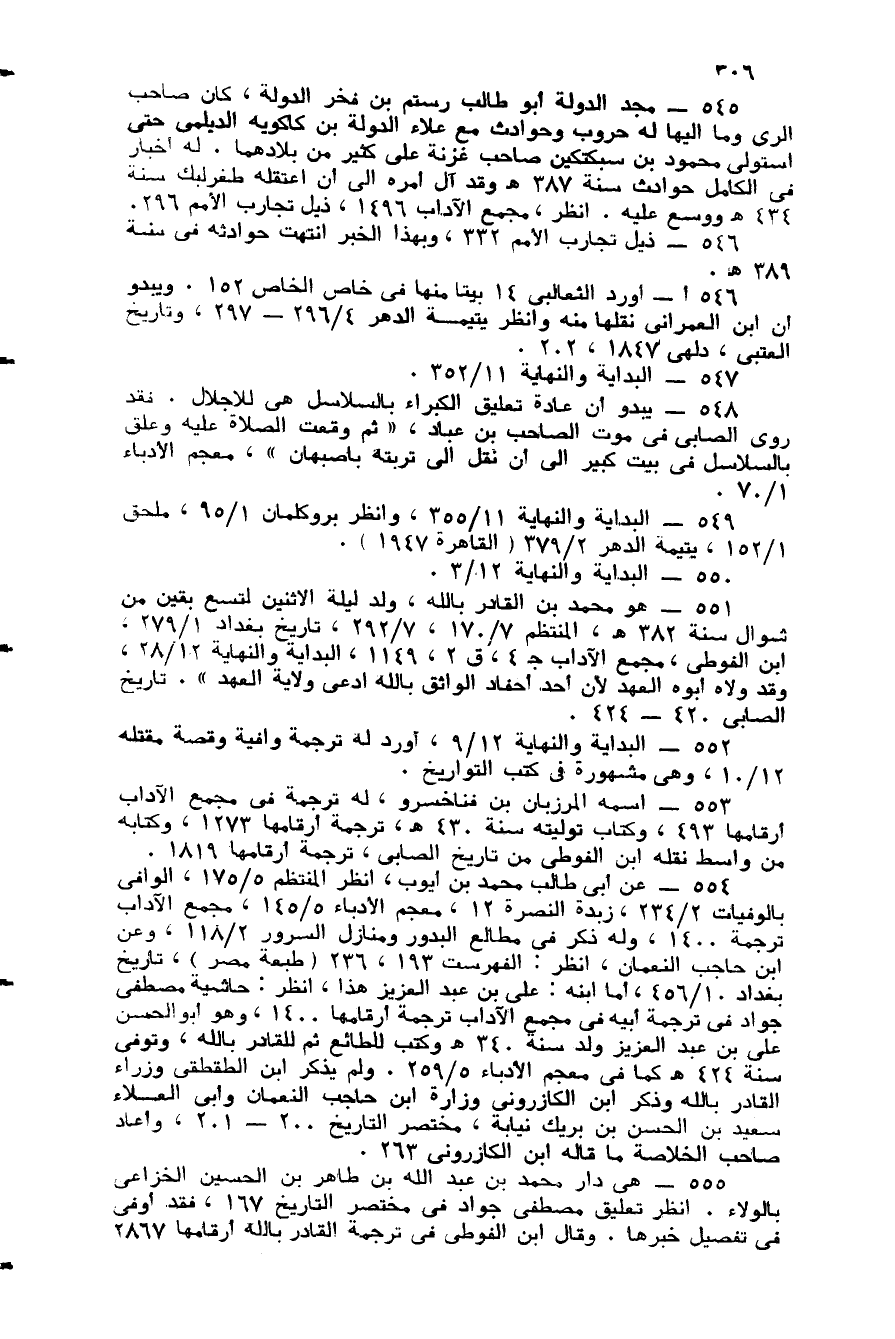 ٣٠٦
٥٤٥ — مجد الدولة أبو طالب رستم بن فخر الدولة ، كان صاحب
الرى وما اليها له حروب وحوادث مع علاء الدولة بن كاكويه الديلمى حتى
استولى محمود بن سبكتكين صاحب غزنة على كثير من بلادهما . له أخبار
فى الكامل حوادث سنة ٣٨٧ هـ وقد آل أمره الى أن اعتقله طغرلبك سنة
٤٣٤ هـ ووسع عليه . انظر ، مجمع الآداب ١٤٩٦ ، ذيل تجارب الأمم ٢٩٦.
٥٤٦ — ذيل تجارب الأمم ٣٣٢ ، وبهذا الخبر انتهت حوادثه فى سنة
٣٨٩ هـ .
٥٤٦ أ — أورد الثعالبى ١٤ بيتا منها فى خاص الخاص ١٥٢ . ويبدو
ان ابن العمرانى نقلها منه وانظر يتيمة الدهر ٢٩٦/٤ — ٢٩٧ ، وتاريخ
العتبى ، دلهى ١٨٤٧ ، ٢٠٢ .
٥٤٧ — البداية والنهاية ٣٥٢/١١ .
٥٤٨ — يبدو أن عادة تعليق الكبراء بالسلاسل هى للاجلال . فقد
روى الصابى فى موت الصاحب بن عباد ، « ثم وقعت الصلاة عليه وعلق
بالسلاسل فى بيت كبير الى أن نقل الى تربته باصبهان » ، معجم الأدباء
٧٠/١ .
٥٤٩ — البداية والنهاية ٣٥٥/١١ ، وانظر بروكلمان ٩٥/١ ، ملحق
١٥٢/١ ، يتيمة الدهر ٣٧٩/٢ ( القاهرة ١٩٤٧ ) .
٥٥٠ — البداية والنهاية ٣/١٢ .
٥٥١ — هو محمد بن القادر بالله ، ولد ليلة الاثنين لتسع بقين من
شوال سنة ٣٨٢ هـ ، المنتظم ١٧٠/٧ ، ٢٩٢/٧ ، تاريخ بغداد ٢٧٩/١ ،
ابن الفوطى ، مجمع الآداب جـ ٤ ، ق ٢ ، ١١٤٩ ، البداية والنهاية ٢٨/١٢ ،
وقد ولاه أبوه العهد لأن أحد أحفاد الواثق بالله ادعى ولاية العهد » . تاريخ
الصابى ٤٢٠ — ٤٢٤ .
٥٥٢ — البداية والنهاية ٩/١٢ ، أورد له ترجمة وافية وقصة مقتله
١٠/١٢ ، وهى مشهورة فى كتب التواريخ .
٥٥٣ — اسمه المرزبان بن فناخسرو ، له ترجمة فى مجمع الآداب
أرقامها ٤٩٣ ، وكتاب توليته سنة ٤٣٠ هـ ، ترجمة أرقامها ١٢٧٣ ، وكتابه
من واسط نقله ابن الفوطى من تاريخ الصابى ، ترجمة أرقامها ١٨١٩ .
٥٥٤ — عن أبى طالب محمد بن أيوب ، انظر المنتظم ١٧٥/٥ ، الوافى
بالوفيات ٢٣٤/٢ ، زبدة النصرة ١٢ ، معجم الأدباء ١٤٥/٥ ، مجمع الآداب
ترجمة ١٤٠٠ ، وله ذكر فى مطالع البدور ومنازل السرور ١١٨/٢ ، وعن
ابن حاجب النعمان ، انظر : الفهرست ١٩٣ ، ٢٣٦ ( طبعة مصر ) ، تاريخ
بغداد ٤٥٦/١٠ ، أما ابنه : على بن عبد العزيز هذا ، انظر : حاشية مصطفى
جواد فى ترجمة أبيه فى مجمع الآداب ترجمة أرقامها ١٤٠٠ ، وهو أبو الحسن
على بن عبد العزيز ولد سنة ٣٤٠ هـ وكتب للطائع ثم للقادر بالله ، وتوفى
سنة ٤٢٤ هـ كما فى معجم الأدباء ٢٥٩/٥ . ولم يذكر ابن الطقطقى وزراء
القادر بالله وذكر ابن الكازرونى وزارة ابن حاجب النعمان وأبى العلاء
سعيد بن الحسن بن بريك نيابة ، مختصر التاريخ ٢٠٠ — ٢٠١ ، وأعاد
صاحب الخلاصة ما قاله ابن الكازرونى ٢٦٣ .
٥٥٥ — هى دار محمد بن عبد الله بن طاهر بن الحسين الخزاعى
بالولاء . انظر تعليق مصطفى جواد فى مختصر التاريخ ١٦٧ ، فقد أوفى
فى تفصيل خبرها . وقال ابن الفوطى فى ترجمة القادر بالله أرقامها ٢٨٦٧